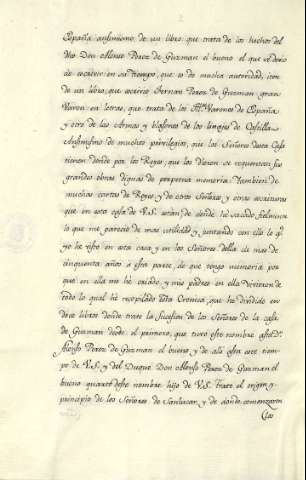 España ansimismo de un libro que trata de los hechos del
dho Don Alonso Perez de Guzman el bueno el que se devio
de escrevir en su tiempo, que es de mucha autoridad, item
de un libro, que escrivio Hernan Perez de Guzman gran
Varon en letras, que trata de los Ills. Varones de España
y otro de las Armas y blasones de los linajes de Castilla
Ansimismo de muchos privilegios, que los Señores desta Casa
tienen dados por los Reyes, que los dieron en
grandes obras dignas de perpetua memoria. Tambien de
muchas cartas de Reyes y de otros Señores, y otras escrituras
que en esta casa de V.S. estan de donde he sacado fielmente
lo que me parecio de mas utilidad y juntando con ello lo q.
yo he visto en esta casa, y en los Señores della de mas de
cinquenta años a esta parte, de que tengo memoria por
que en ella me he criado, y mis padres en ella vivieron de
todo lo qual he recopilado esta Cronica, que he dividido en
doce libros donde trato la Sucesion de los Señores de la casa
de Guzman desde el primero, que tuvo este nombre
Alonso Perez de Guzman el bueno y de alli hasta este tiem
po de V.S. y del Duque Don Alonso Perez de Guzman el
bueno quarto deste nombre hijo de V.S. Trato el origen y
principio de los Señores de Sanlucar y de donde comenzaron